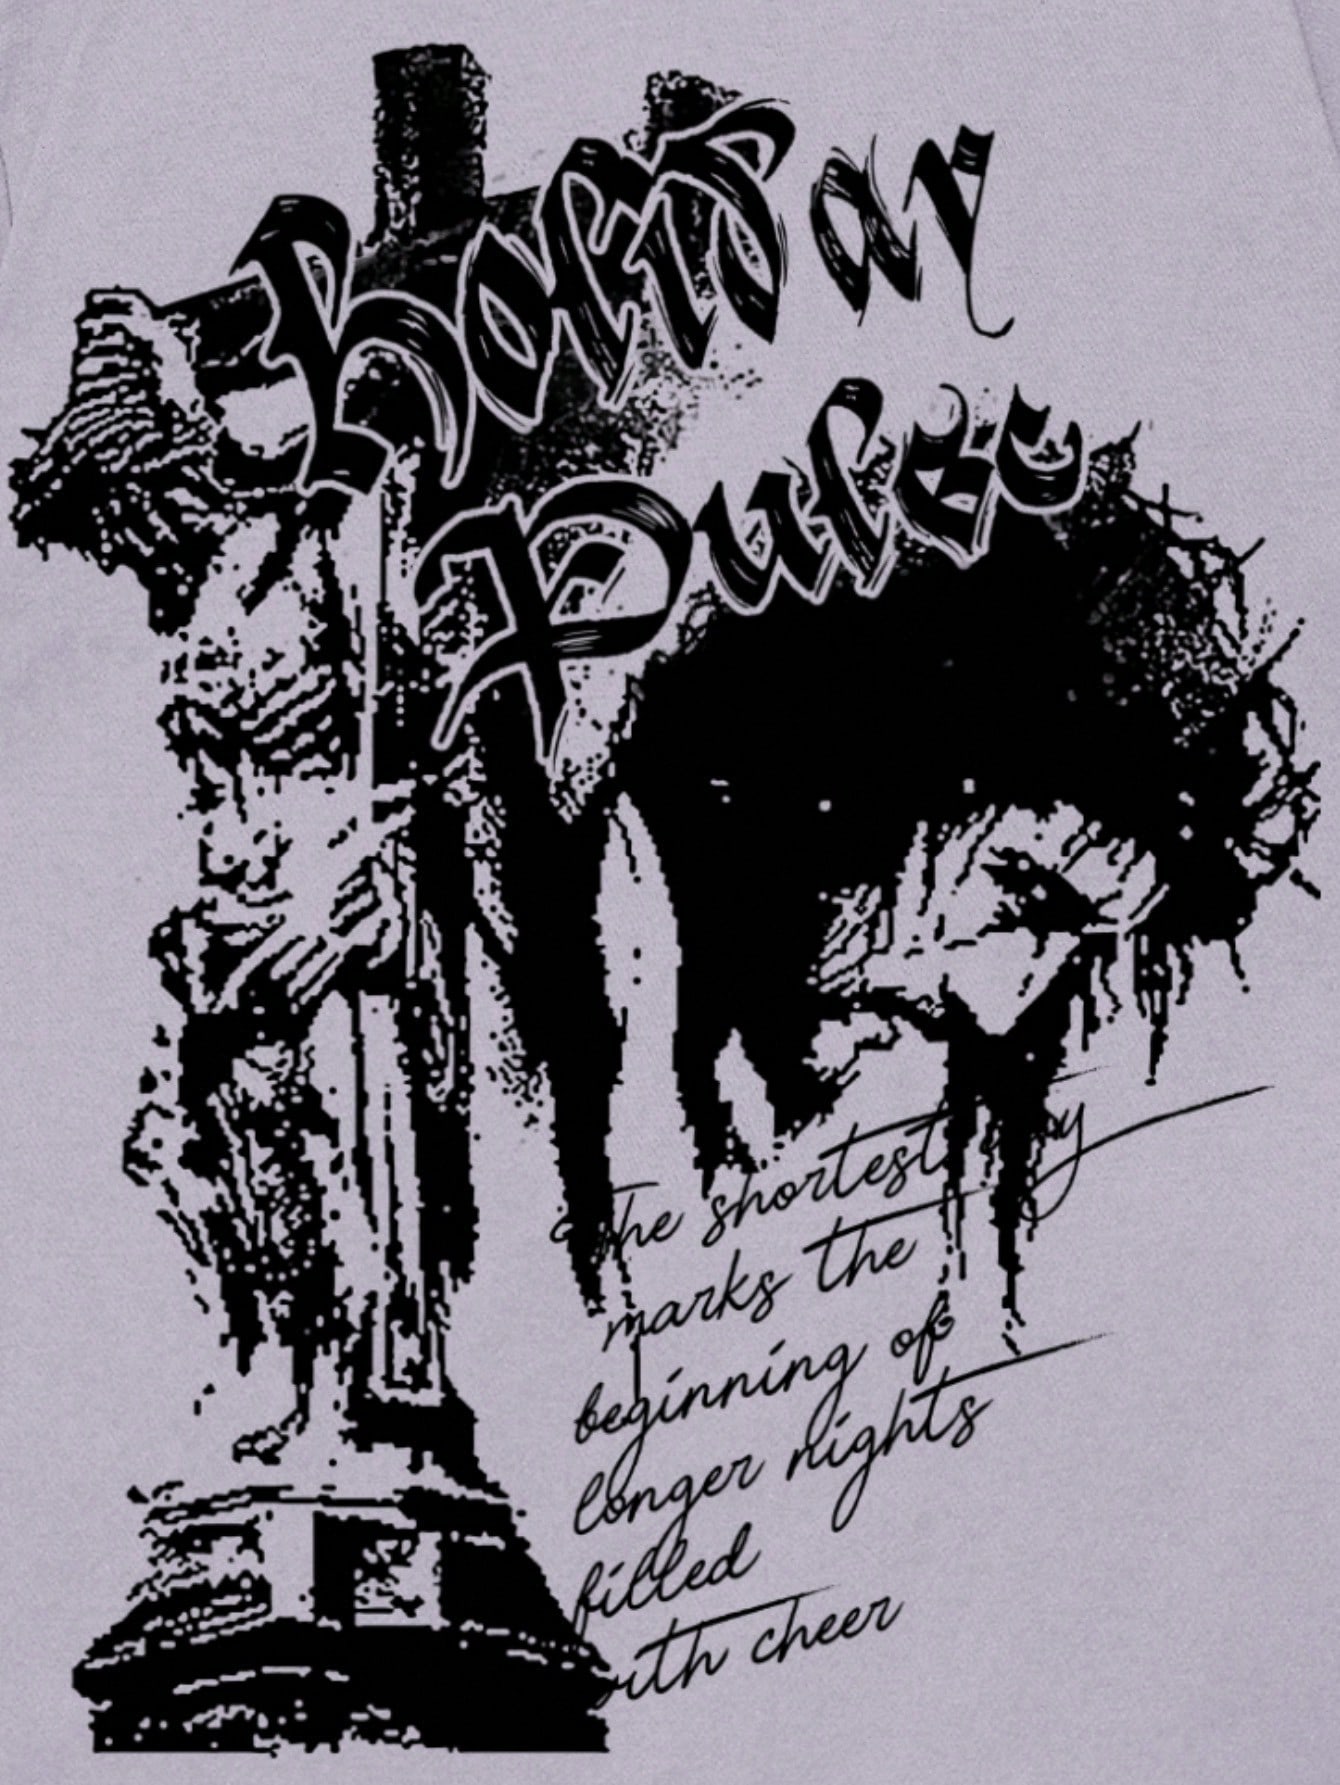 ar
Pulse
The shortest day
marks the
beginning of
longer nights
filled
with cheer